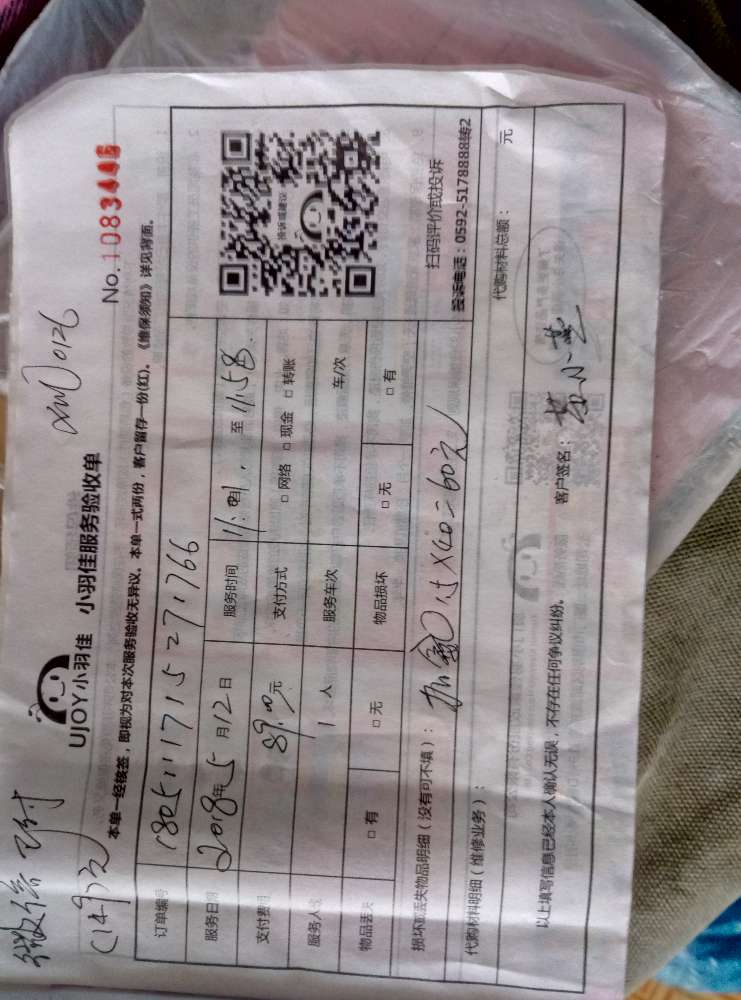 微信 已付
(149元)
No.1083446
UJOY小羽佳 小羽佳服务验收单
本单一经核签，即视为对本次服务验收无异议。本单一式两份，客户留存一份(红)。《维保须知》详见背面。
订单编号 180511171527 1766
服务日期 2018年5月12日 服务时间 至 11:58
支付费用 89.00元 支付方式 □ 网络 □ 现金 □ 转账
服务人 1 人 服务车次 车/次
物品丢失 □ 有 □ 无 物品损坏 □ 无 □ 有
投诉或建议
扫码评价或投诉
投诉电话：0592-5178888转2
损坏或丢失物品明细（没有可不填）： 加氟 X40=60元
代购材料明细（维修业务）： 代购材料总额： 元
以上填写信息已经本人确认无误，不存在任何争议纠纷。 客户签名：